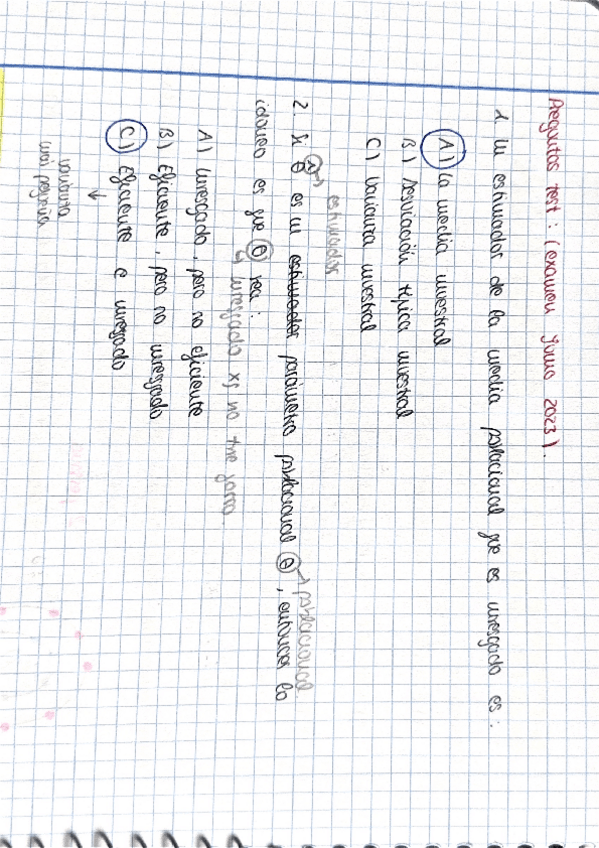 Preguntas test: (examen junio 2023).
1. Un estimador de la media poblacional que es insesgado es:
A) La media muestral
B) Desviación típica muestral
C) Varianza muestral
estimador
2. Si θ̂ es un estimador parámetro poblacional θ, entonces lo
poblacional
idóneo es que θ sea:
insesgado xq no tne
A) Insesgado, pero no eficiente
B) Eficiente, pero no insesgado
C) Eficiente e insesgado
↓
varianza